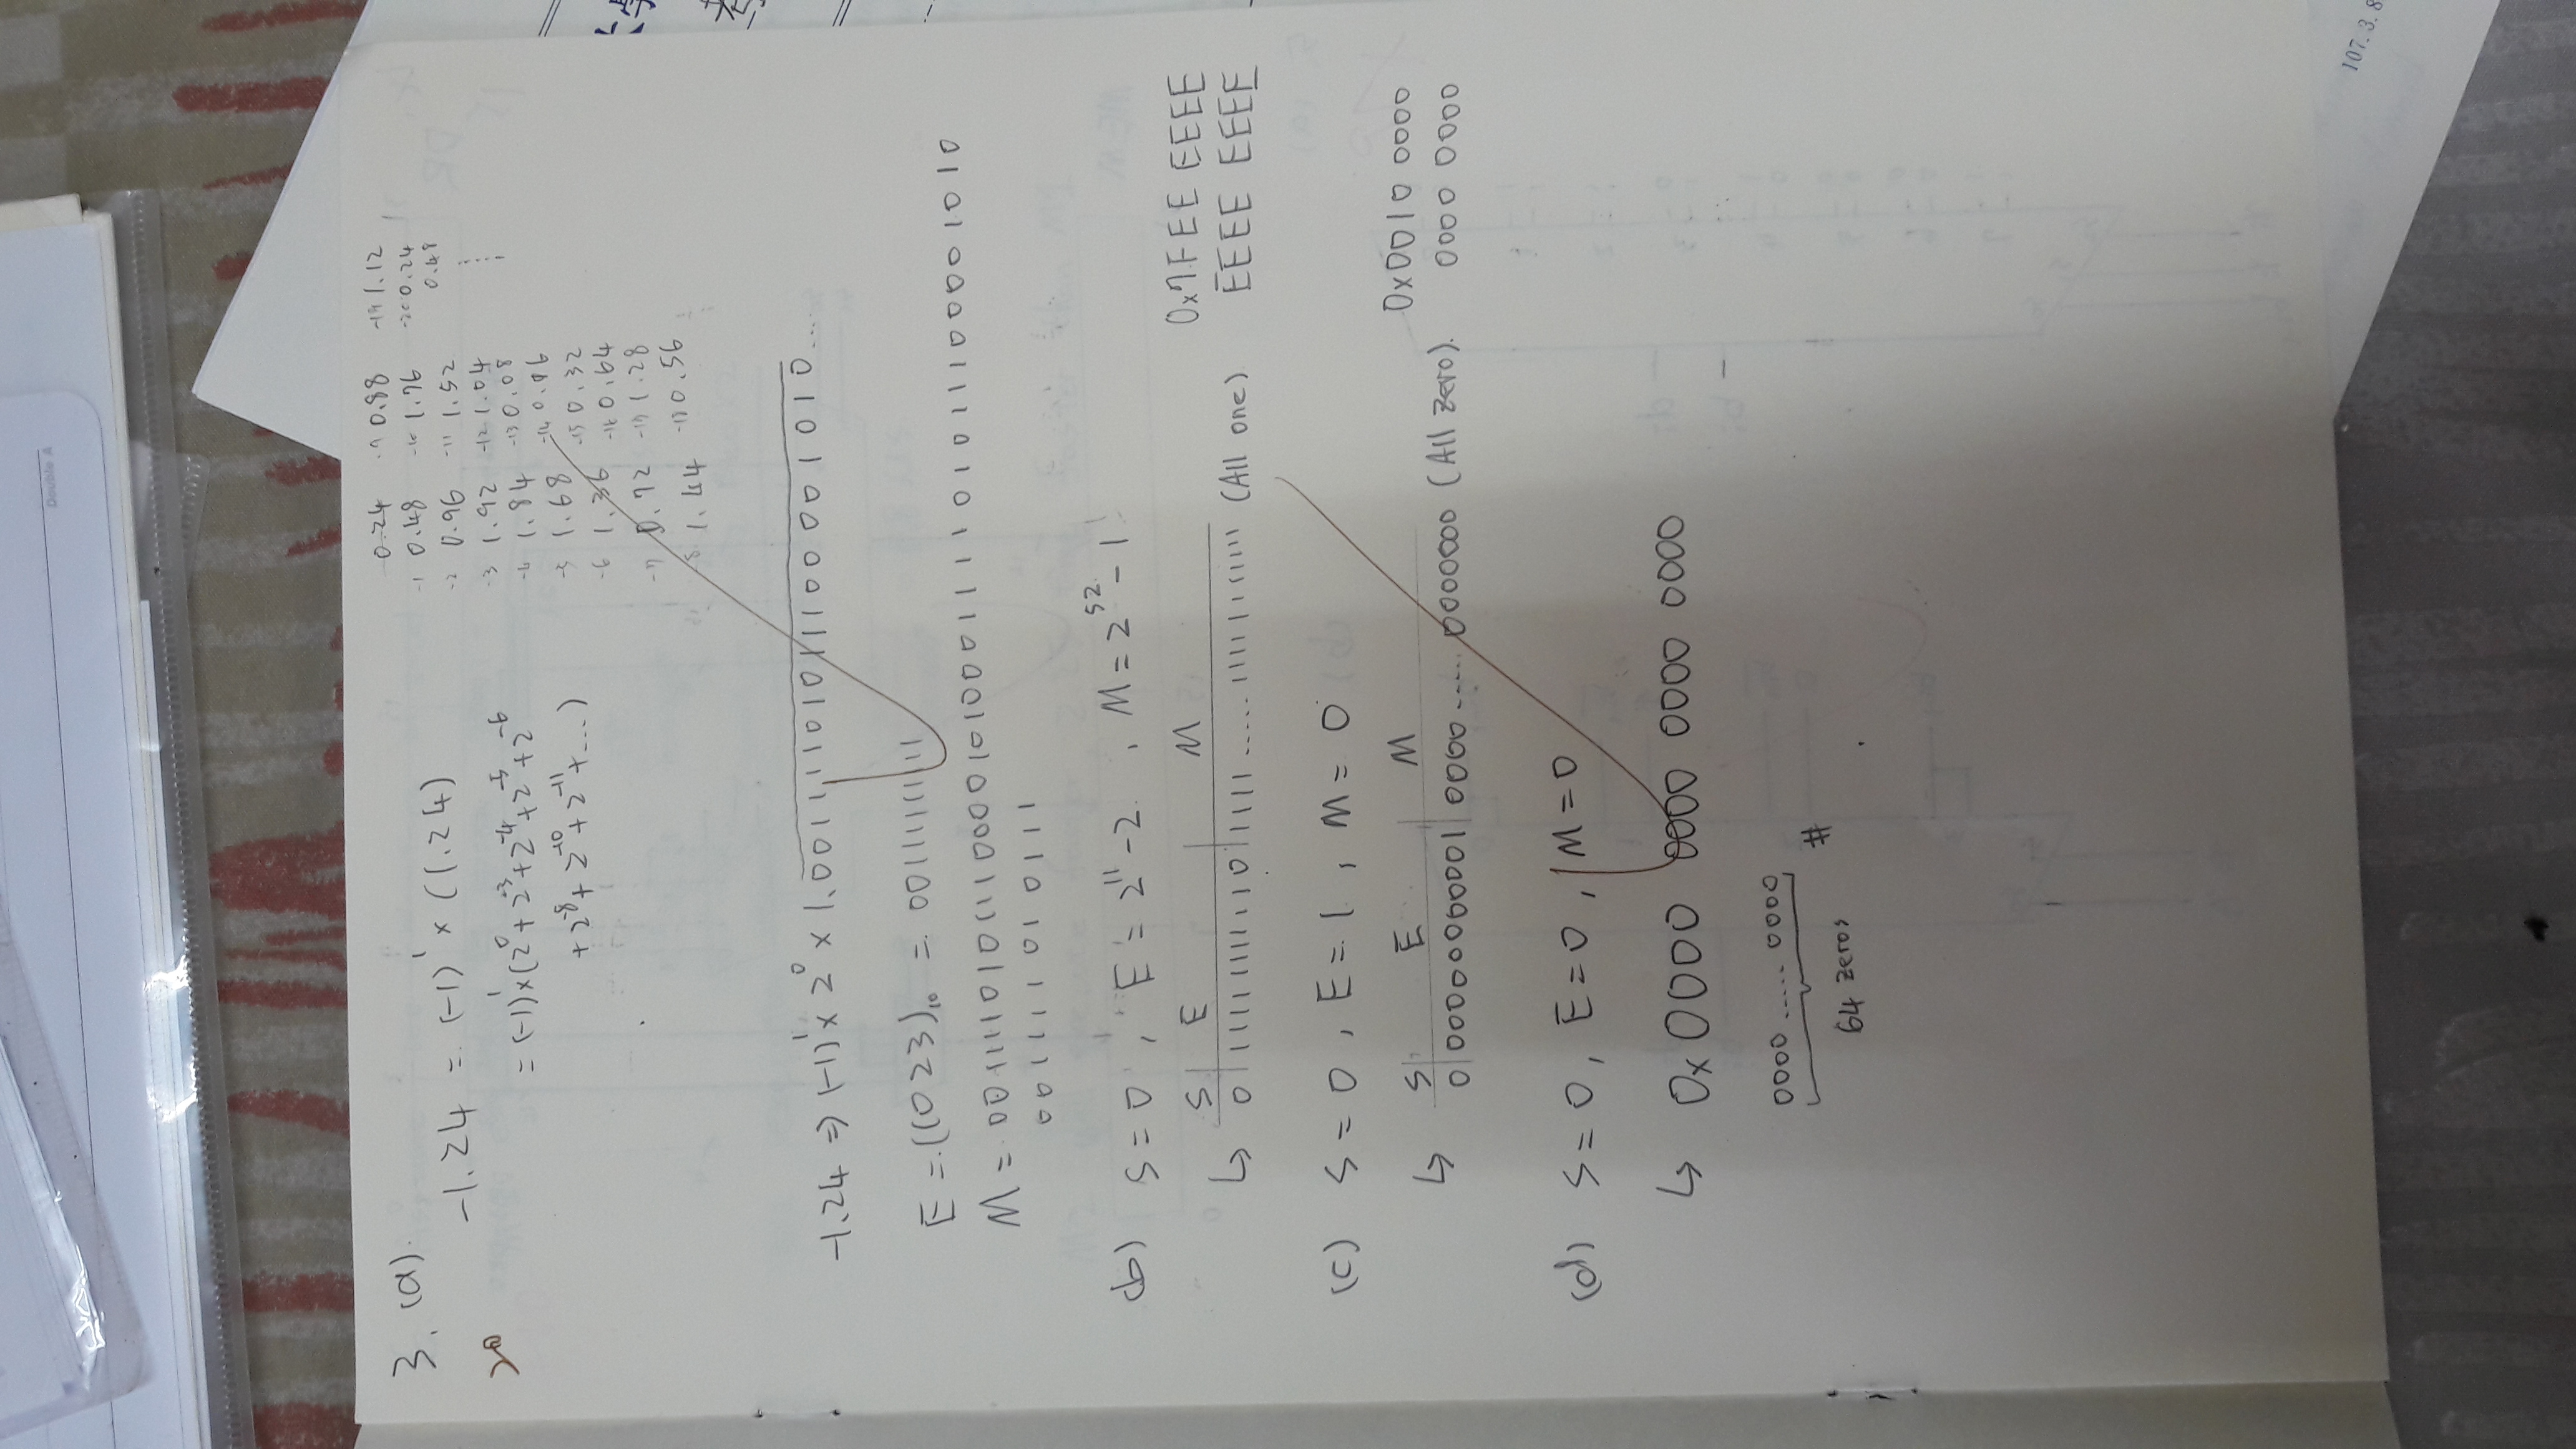 Double A
3. (a).
20
-1.24 = (-1)¹ × (1.24)
= (-1)¹×(2⁰ + 2⁻³ + 2⁻⁴ + 2⁻⁵ + 2⁻⁶
+ 2⁻⁸ + 2⁻¹⁰ + 2⁻¹¹ + ...)
0.24
-1 0.48
-2 0.96
-3 1.92
-4 1.84
-5 1.68
-6 1.36
-7 0.72
-8 1.44
-9 0.88
-10 1.76
-11 1.52
-12 1.04
-13 0.08
-14 0.16
-15 0.32
-16 0.64
-17 1.28
-18 0.56
-19 1.12
-20 0.24
0.48
-1.24 ⇒ (-1)¹ × 2⁰ × 1.00111101011100001010....
E = (1023)₁₀ = 01111111111
M = 0011110101110000101000111101011100001010
001111010111
(b) S = 0 , E = 2¹¹-2 , M = 2⁵² - 1
S E M
↳ 0 11111111110 1111 ..... 1111111111 (All one)
0x7FEE EEEE
EEEE EEEE
(c) S = 0 , E = 1 , M = 0
S E M
↳ 0 00000000001 0000 ..... 0000000 (All zero).
0x0010 0000
0000 0000
(d) S = 0, E = 0 , M = 0
↳ 0x0000 0000 0000 0000
0000 ..... 0000
64 zeros #
107.3.8